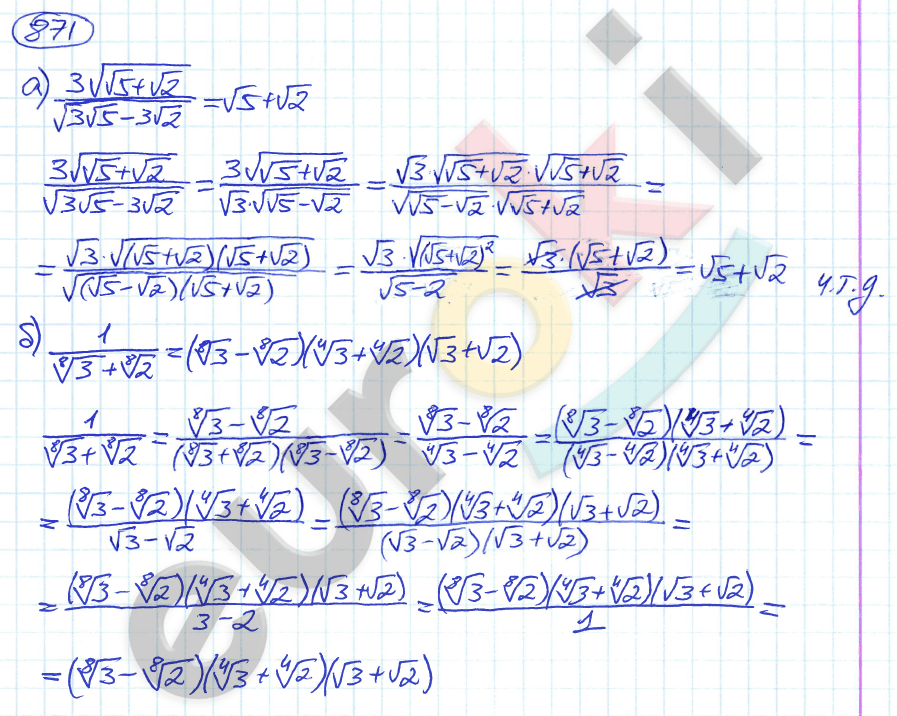 871
а) 3√(√5+√2) / √(3√5-3√2) = √5+√2
3√(√5+√2) / √(3√5-3√2) = 3√(√5+√2) / (√3·√(√5-√2)) = √3·√(√5+√2)·√(√5+√2) / (√(√5-√2)·√(√5+√2)) =
= √3·√((√5+√2)(√5+√2)) / √((√5-√2)(√5+√2)) = √3·√((√5+√2)²) / √(5-2) = √3·(√5+√2) / √3 = √5+√2 ч.т.д.
б) 1 / (⁸√3+⁸√2) = (⁸√3-⁸√2)(⁴√3+⁴√2)(√3+√2)
1 / (⁸√3+⁸√2) = (⁸√3-⁸√2) / ((⁸√3+⁸√2)(⁸√3-⁸√2)) = (⁸√3-⁸√2) / (⁴√3-⁴√2) = (⁸√3-⁸√2)(⁴√3+⁴√2) / ((⁴√3-⁴√2)(⁴√3+⁴√2)) =
= (⁸√3-⁸√2)(⁴√3+⁴√2) / (√3-√2) = (⁸√3-⁸√2)(⁴√3+⁴√2)(√3+√2) / ((√3-√2)(√3+√2)) =
= (⁸√3-⁸√2)(⁴√3+⁴√2)(√3+√2) / (3-2) = (⁸√3-⁸√2)(⁴√3+⁴√2)(√3+√2) / 1 =
= (⁸√3-⁸√2)(⁴√3+⁴√2)(√3+√2)
euroki